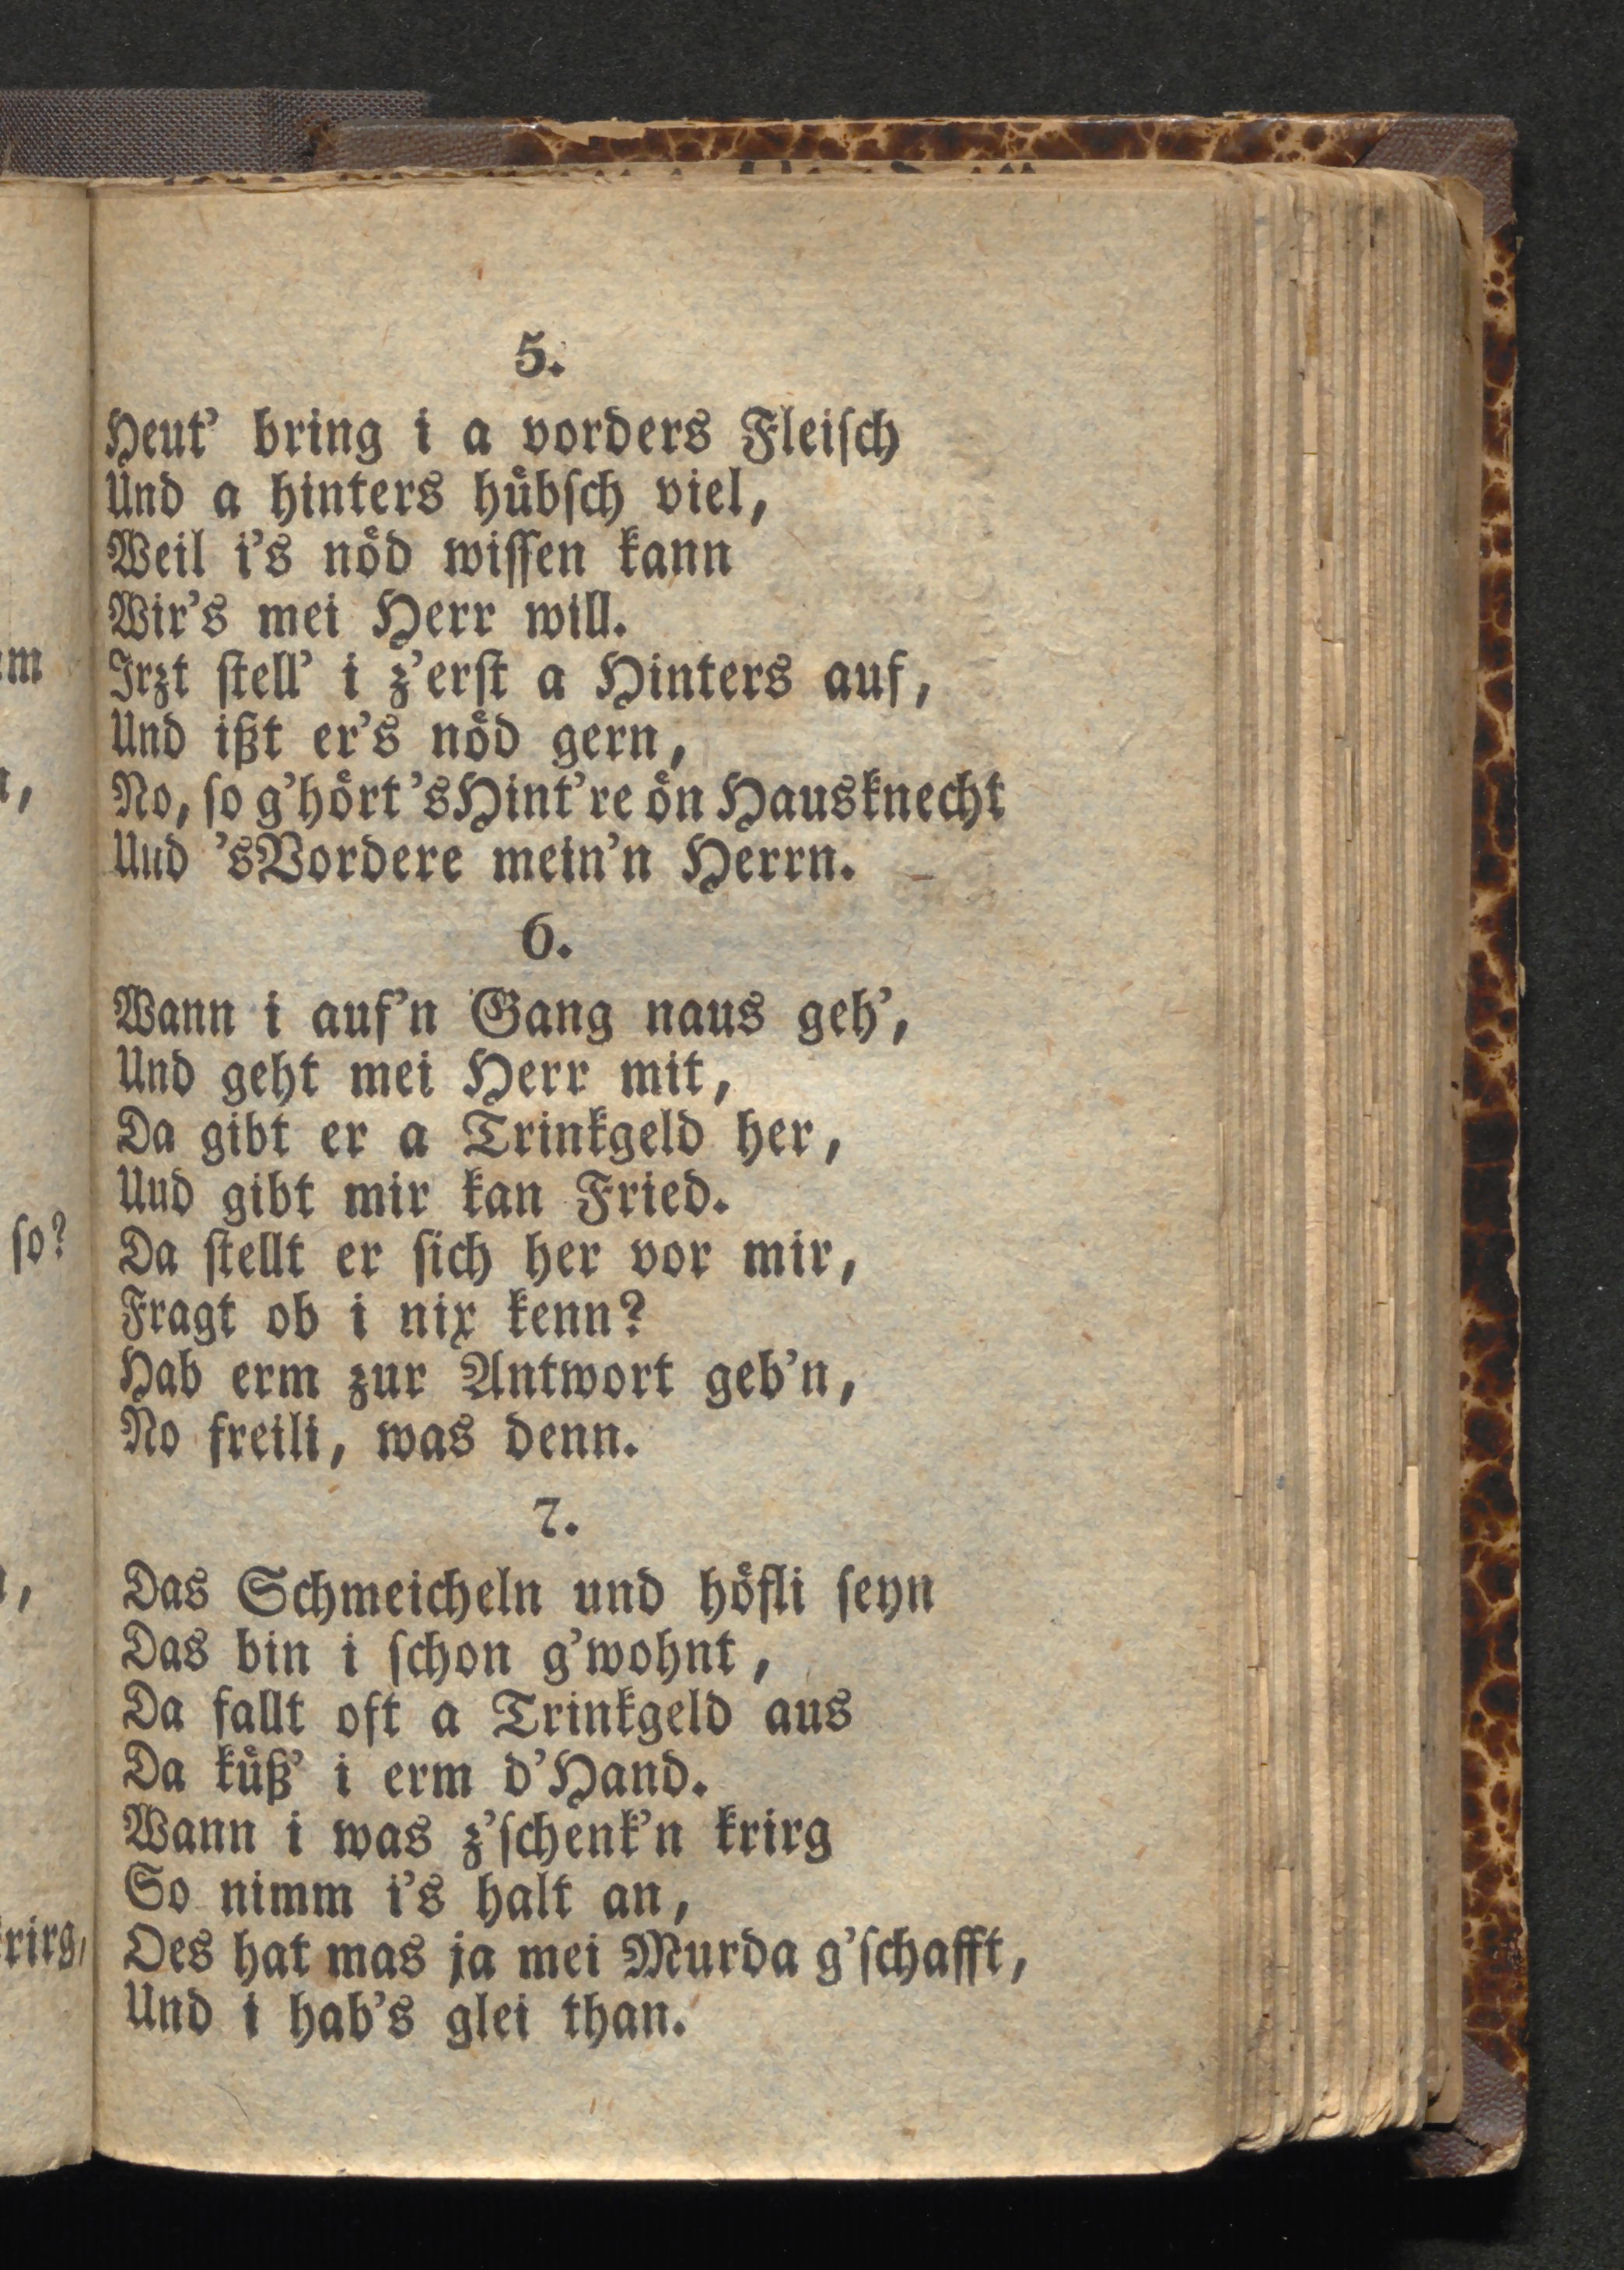 5.
Heut' bring i a vorders Fleiſch
Und a hinters huͤbſch viel,
Weil i's noͤd wiſſen kann
Wir's mei Herr will.
Irzt ſtell' i z'erſt a Hinters auf,
Und ißt er's noͤd gern,
No, ſo g'hoͤrt 'sHint're oͤn Hausknecht
Uud 'sVordere mein'n Herrn.
6.
Wann i auf'n Gang naus geh',
Und geht mei Herr mit,
Da gibt er a Trinkgeld her,
Uud gibt mir kan Fried.
Da ſtellt er ſich her vor mir,
Fragt ob i nix kenn?
Hab erm zur Antwort geb'n,
No freili, was denn.
7.
Das Schmeicheln und hoͤfli ſeyn
Das bin i ſchon g'wohnt,
Da fallt oft a Trinkgeld aus
Da kuͤß' i erm d'Hand.
Wann i was z'ſchenk'n krirg
So nimm i's halt an,
Oes hat mas ja mei Murda g'ſchafft,
Und i hab's glei than.
ſo?